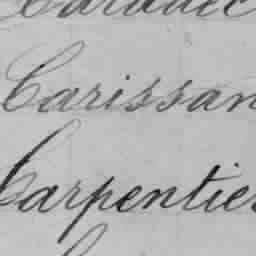 Carissan
Carpentier